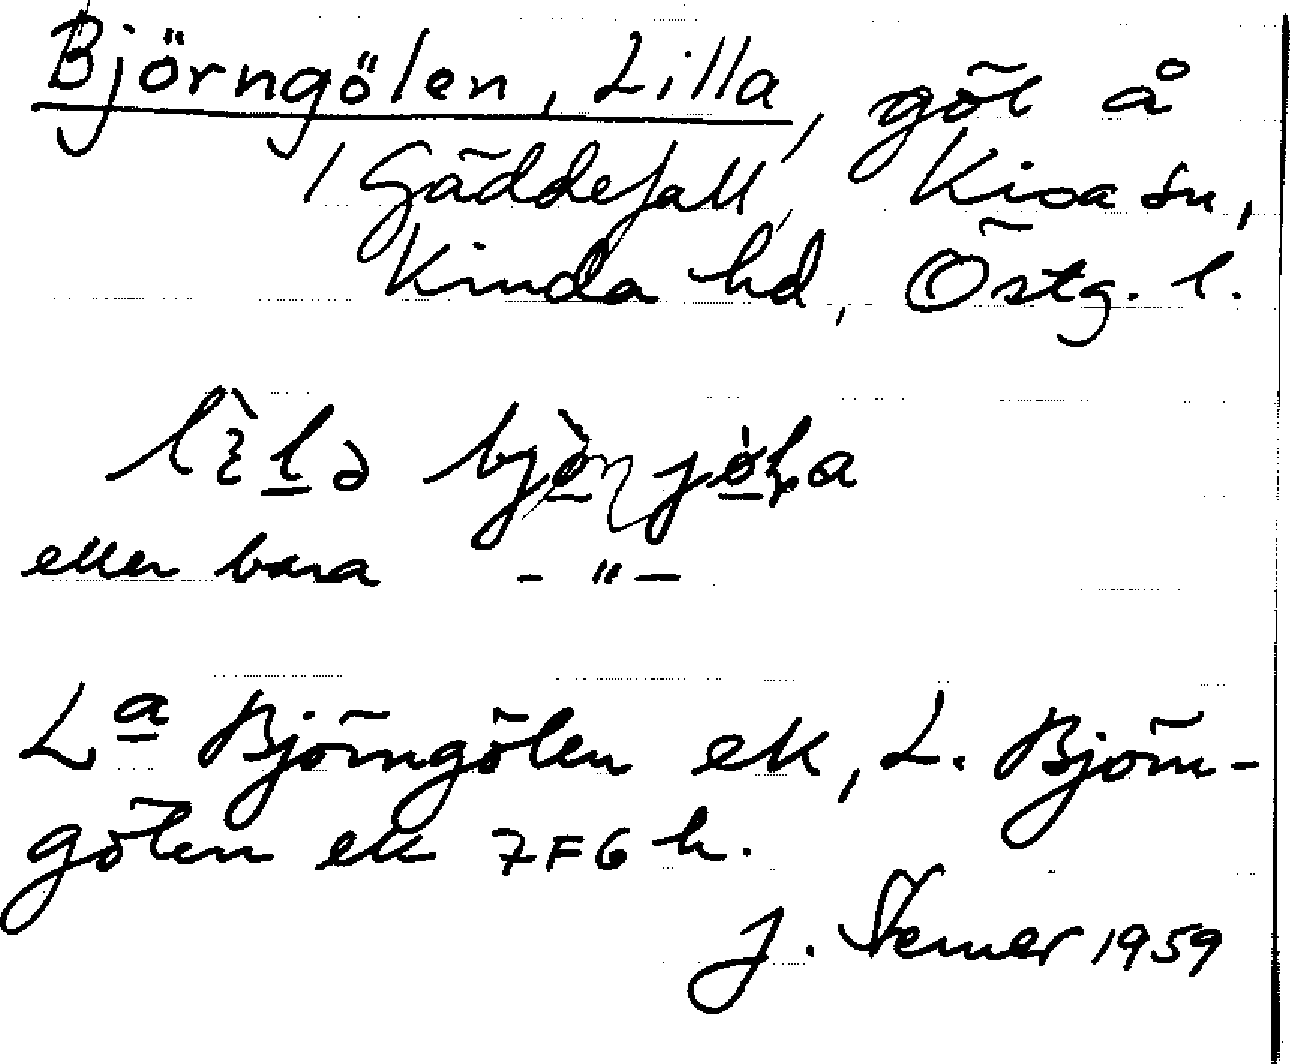 Björngölen, Lilla, göl å
/ Gäddefall, Kisa sn,
Kinda hd, Östg. l.
eller bara - " -
La Björngölen ek, L. Björn-
gölen ek 7F6 h.
J. 1959